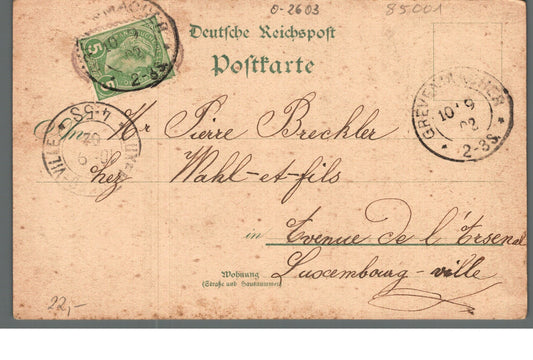 0-2603
85001
Deutsche Reichspost
Postkarte
5 5
10 9
02
2-3S.
GREVENMACHER
10 9
02
2-3S.
4-5S
VILLE
An Mr Pierre Breckler
chez Wahl-et-fils
in Avenue de l'Arsenal
Wohnung
(Straße und Hausnummer)
Luxembourg-ville
22,-